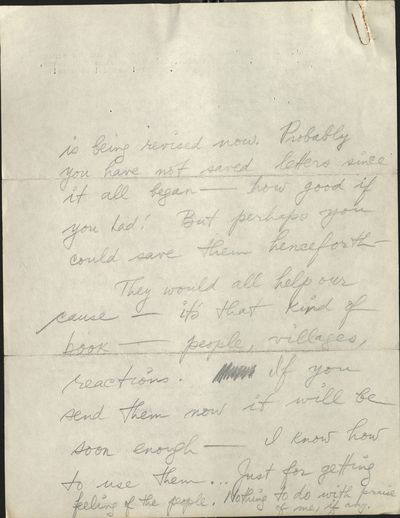 is being revised now. Probably
you have not saved letters since
it all began — how good if
you had! But perhaps you
could save them henceforth —
They would all help our
cause — it's that kind of
book — people, villages,
reactions. If you
send them now it will be
soon enough — I know how
to use them... Just for getting
feeling of the people. Nothing to do with praise
of me, if any.